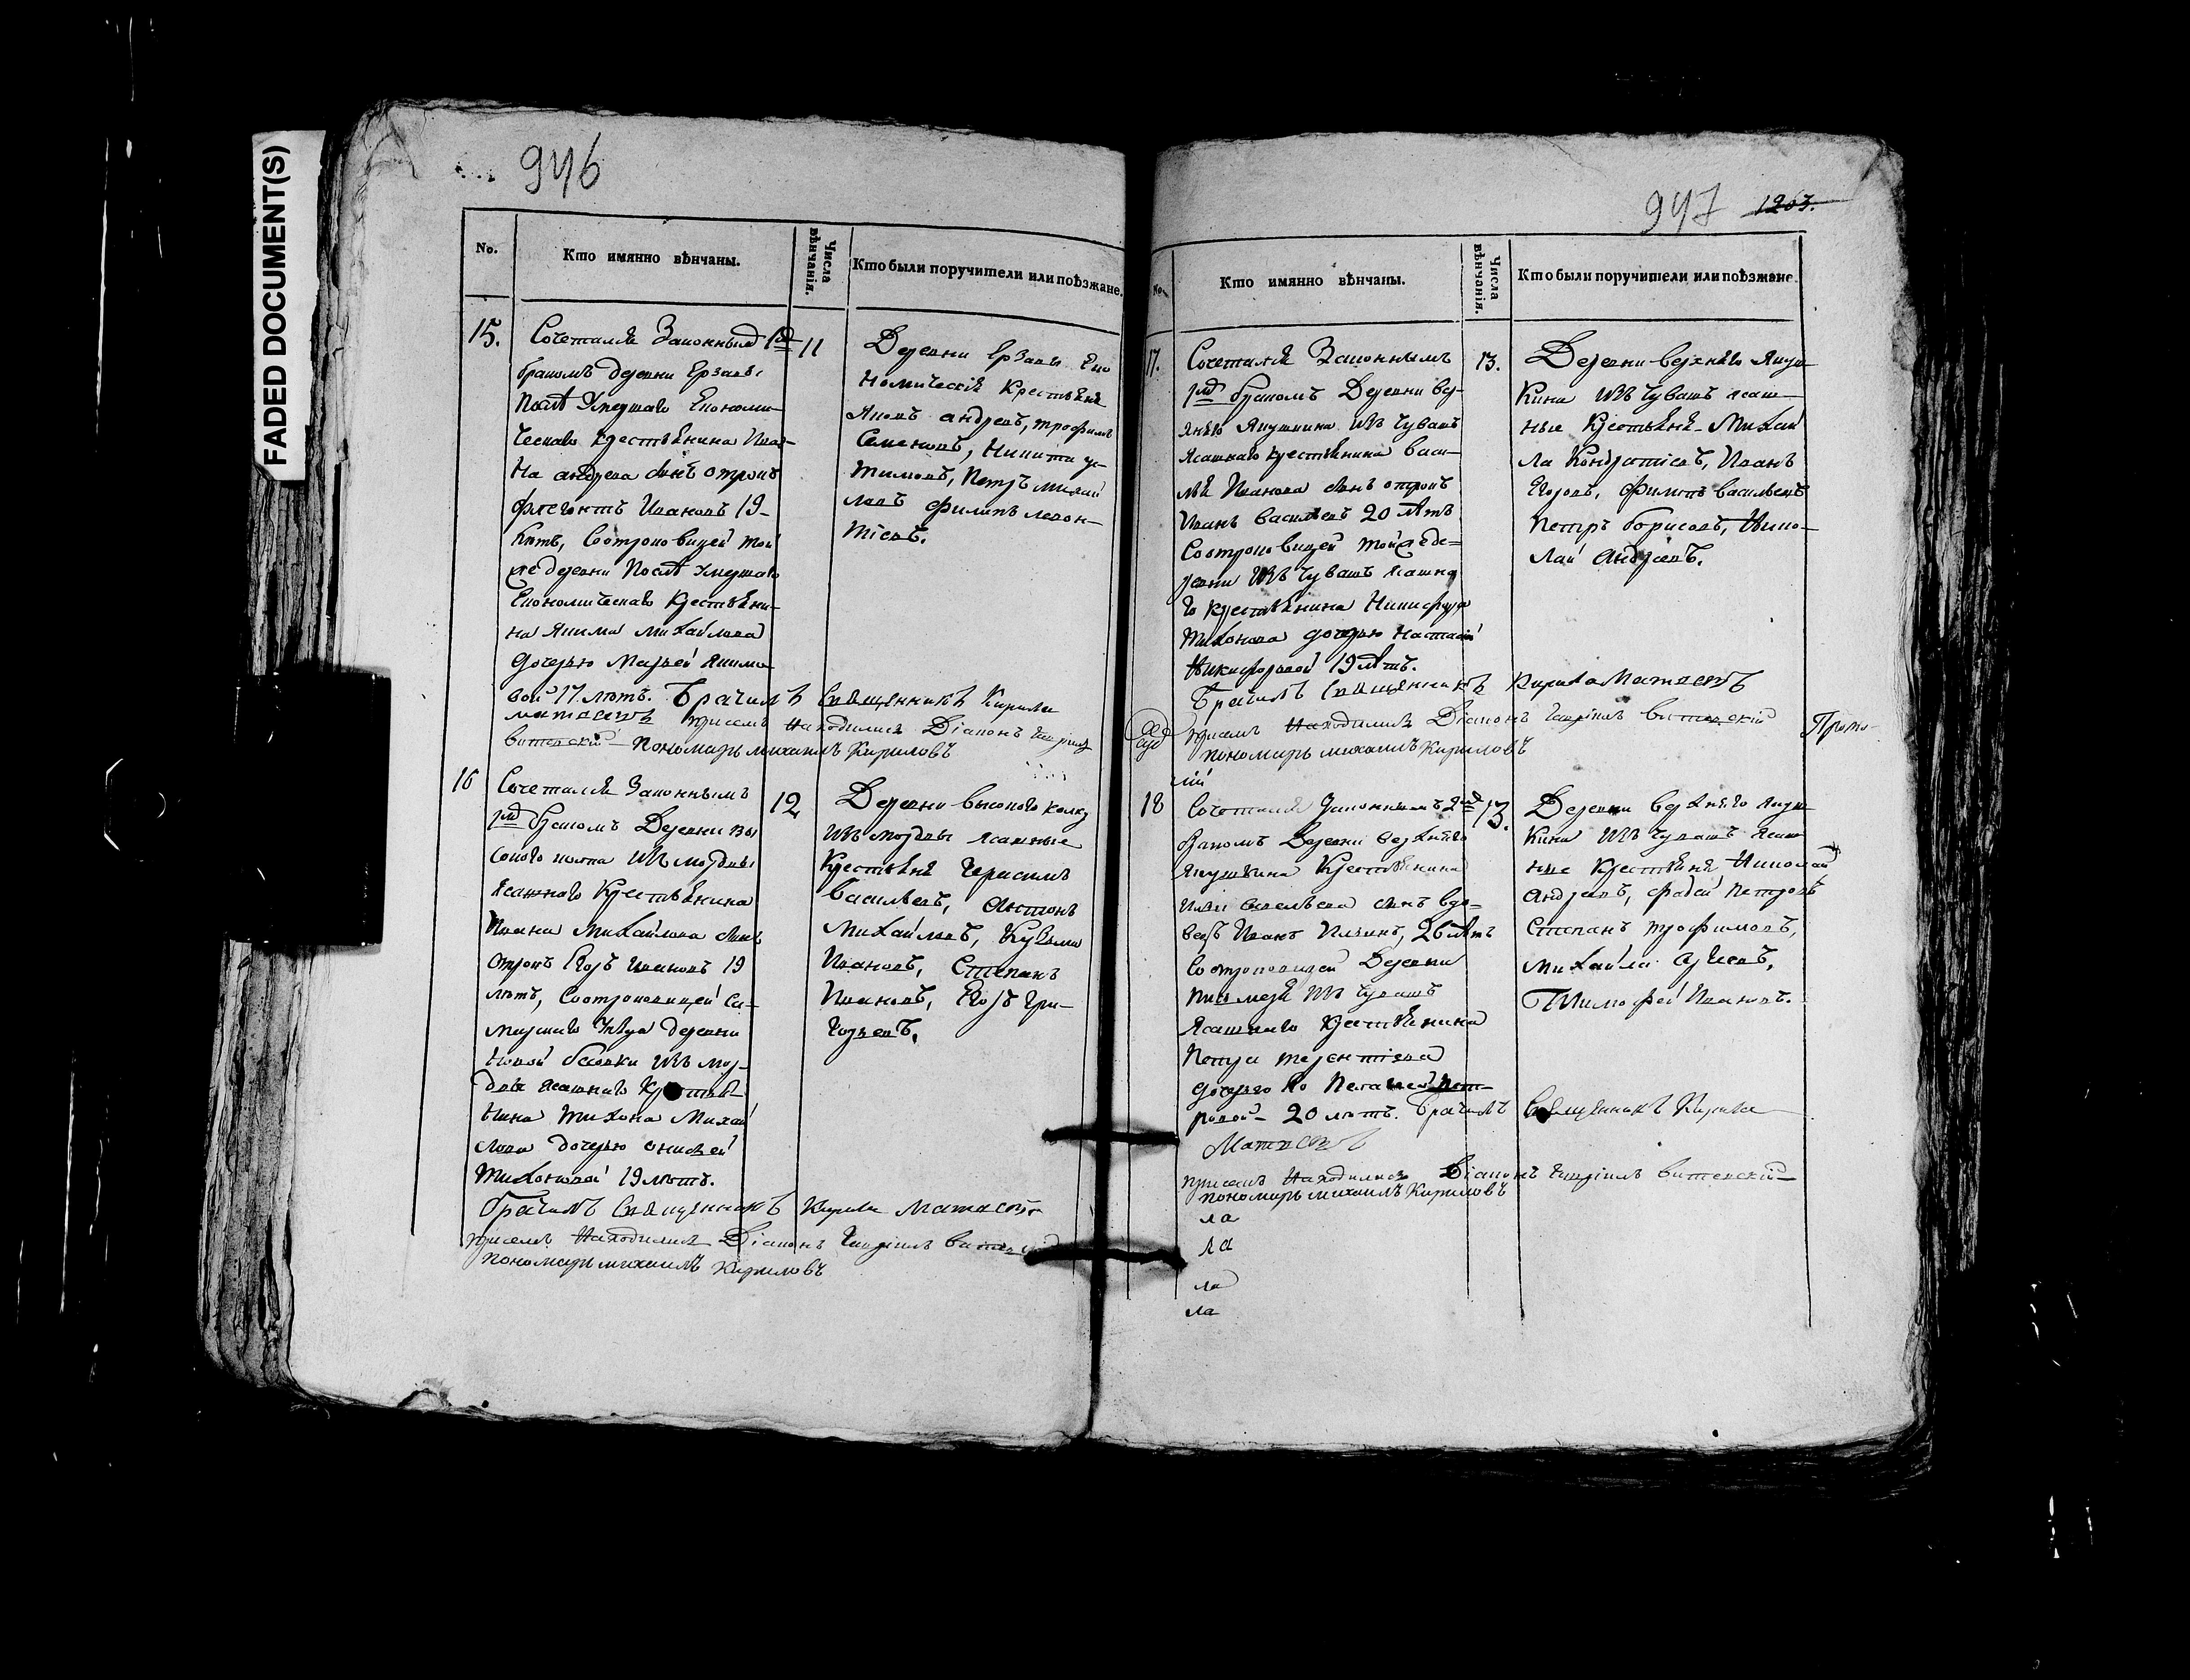 FADED DOCUMENT(S)
946
No.
Кто имянно вѣнчаны.
Числа вѣнчанія.
Кто были поручители или поѣзжане.
15.
Сочетался Законнымъ 1мъ
бракомъ деревни Ерзавы
послѣ Умершаго Економи-
ческаго крестьянина Ива-
на андреева сынъ отрокъ
флегонтъ Ивановъ 19-
лѣтъ, Соотроковицей той
же деревни Послѣ Умершаго
Економическаго крестьяни-
на Якима михайлова
дочерью Марьей Якимо-
вой 17 лѣтъ. Брачилъ Священникъ Кирила
матвеевъ присемъ находился Діаконъ Гаврiилъ
витевскій пономарь михаилъ Кириловъ
11
Деревни Ерзавы Еко
номическія крестьяня
Яковъ андреевъ, трофимъ
Семеновъ, Никита
тимовъ, Петръ михай
ловъ филипъ леон-
тіевъ.
16
Сочетался Законнымъ
1мъ бракомъ Деревни вы
сокого колка изъ мордвы
Ясашнаго Крестьянина
Ивана Михайлова сынъ
отрокъ Егоръ Ивановъ 19
лѣтъ, Соотроковицей Са-
марскаго Уезда деревни
новой бесовки изъ мор-
двы ясашнаго Крестья-
нина Тихона Михай
лова дочерью
Тихоновой 19 лѣтъ.
Брачилъ Священникъ Кирила Матвеевъ
присемъ находился Діаконъ Гаврiилъ витевскій
пономарь михаилъ Кириловъ
12
Деревни высокого колку
изъ мордвы Ясашные
Крестьяня Герасимъ
Васильевъ, Антонъ
Михайловъ, Кузьма
Ивановъ, Степанъ
Ивановъ, Егоръ Гри-
горьевъ.
947 1203.
No.
Кто имянно вѣнчаны.
Числа вѣнчанія.
Кто были поручители или поѣзжане.
17.
Сочетался Законнымъ
1мъ бракомъ Деревни вер-
хняго Якушкина изъ Чувашъ
Ясашнаго крестьянина васи-
лья Иванова сынъ отрокъ
Иванъ Васильевъ 20 лѣтъ
Соотроковицей тойже де=
ревни изъ Чувашъ Ясашна
го крестьянина Никифора
Тихонова дочерью настасьей
Никифоровой 19 лѣтъ.
Брачилъ Священникъ Кирила Матвеевъ
присемъ находился Діаконъ Гаврiилъ витевскій
пономарь михаилъ Кириловъ
Прото-
лій
13.
Деревни верхняго Якуш-
кина изъ Чувашъ ясаш-
ные Крестьяня Михай
ла Кондратіевъ, Иванъ
Егоровъ, Филипъ васильевъ
Петръ борисовъ, Нико-
лай Андреевъ.
18
Сочетался Законнымъ 2мъ
бракомъ Деревни верхняго
Якушкина Крестьянина
Ильи савельева сынъ вдо-
вецъ Иванъ Ильинъ, 26 лѣтъ
Соотроковицей Деревни
изъ Чувашъ
Ясашнаго Крестьянина
Петра терентіева
дочерью Пелагеей Пет-
ровой 20 лѣтъ. Брачилъ Священникъ Кирила
Матвеевъ
присемъ находился Діаконъ Гаврiилъ витевскій
пономарь михаилъ Кириловъ
ла
ла
ла
ла
13.
Деревни верхняго Якуш-
кина изъ Чувашъ ясаш
ные Крестьяня Николай
Андреевъ, фадей Петровъ
Степанъ трофимовъ,
Михайла
Тимофей Ивановъ.